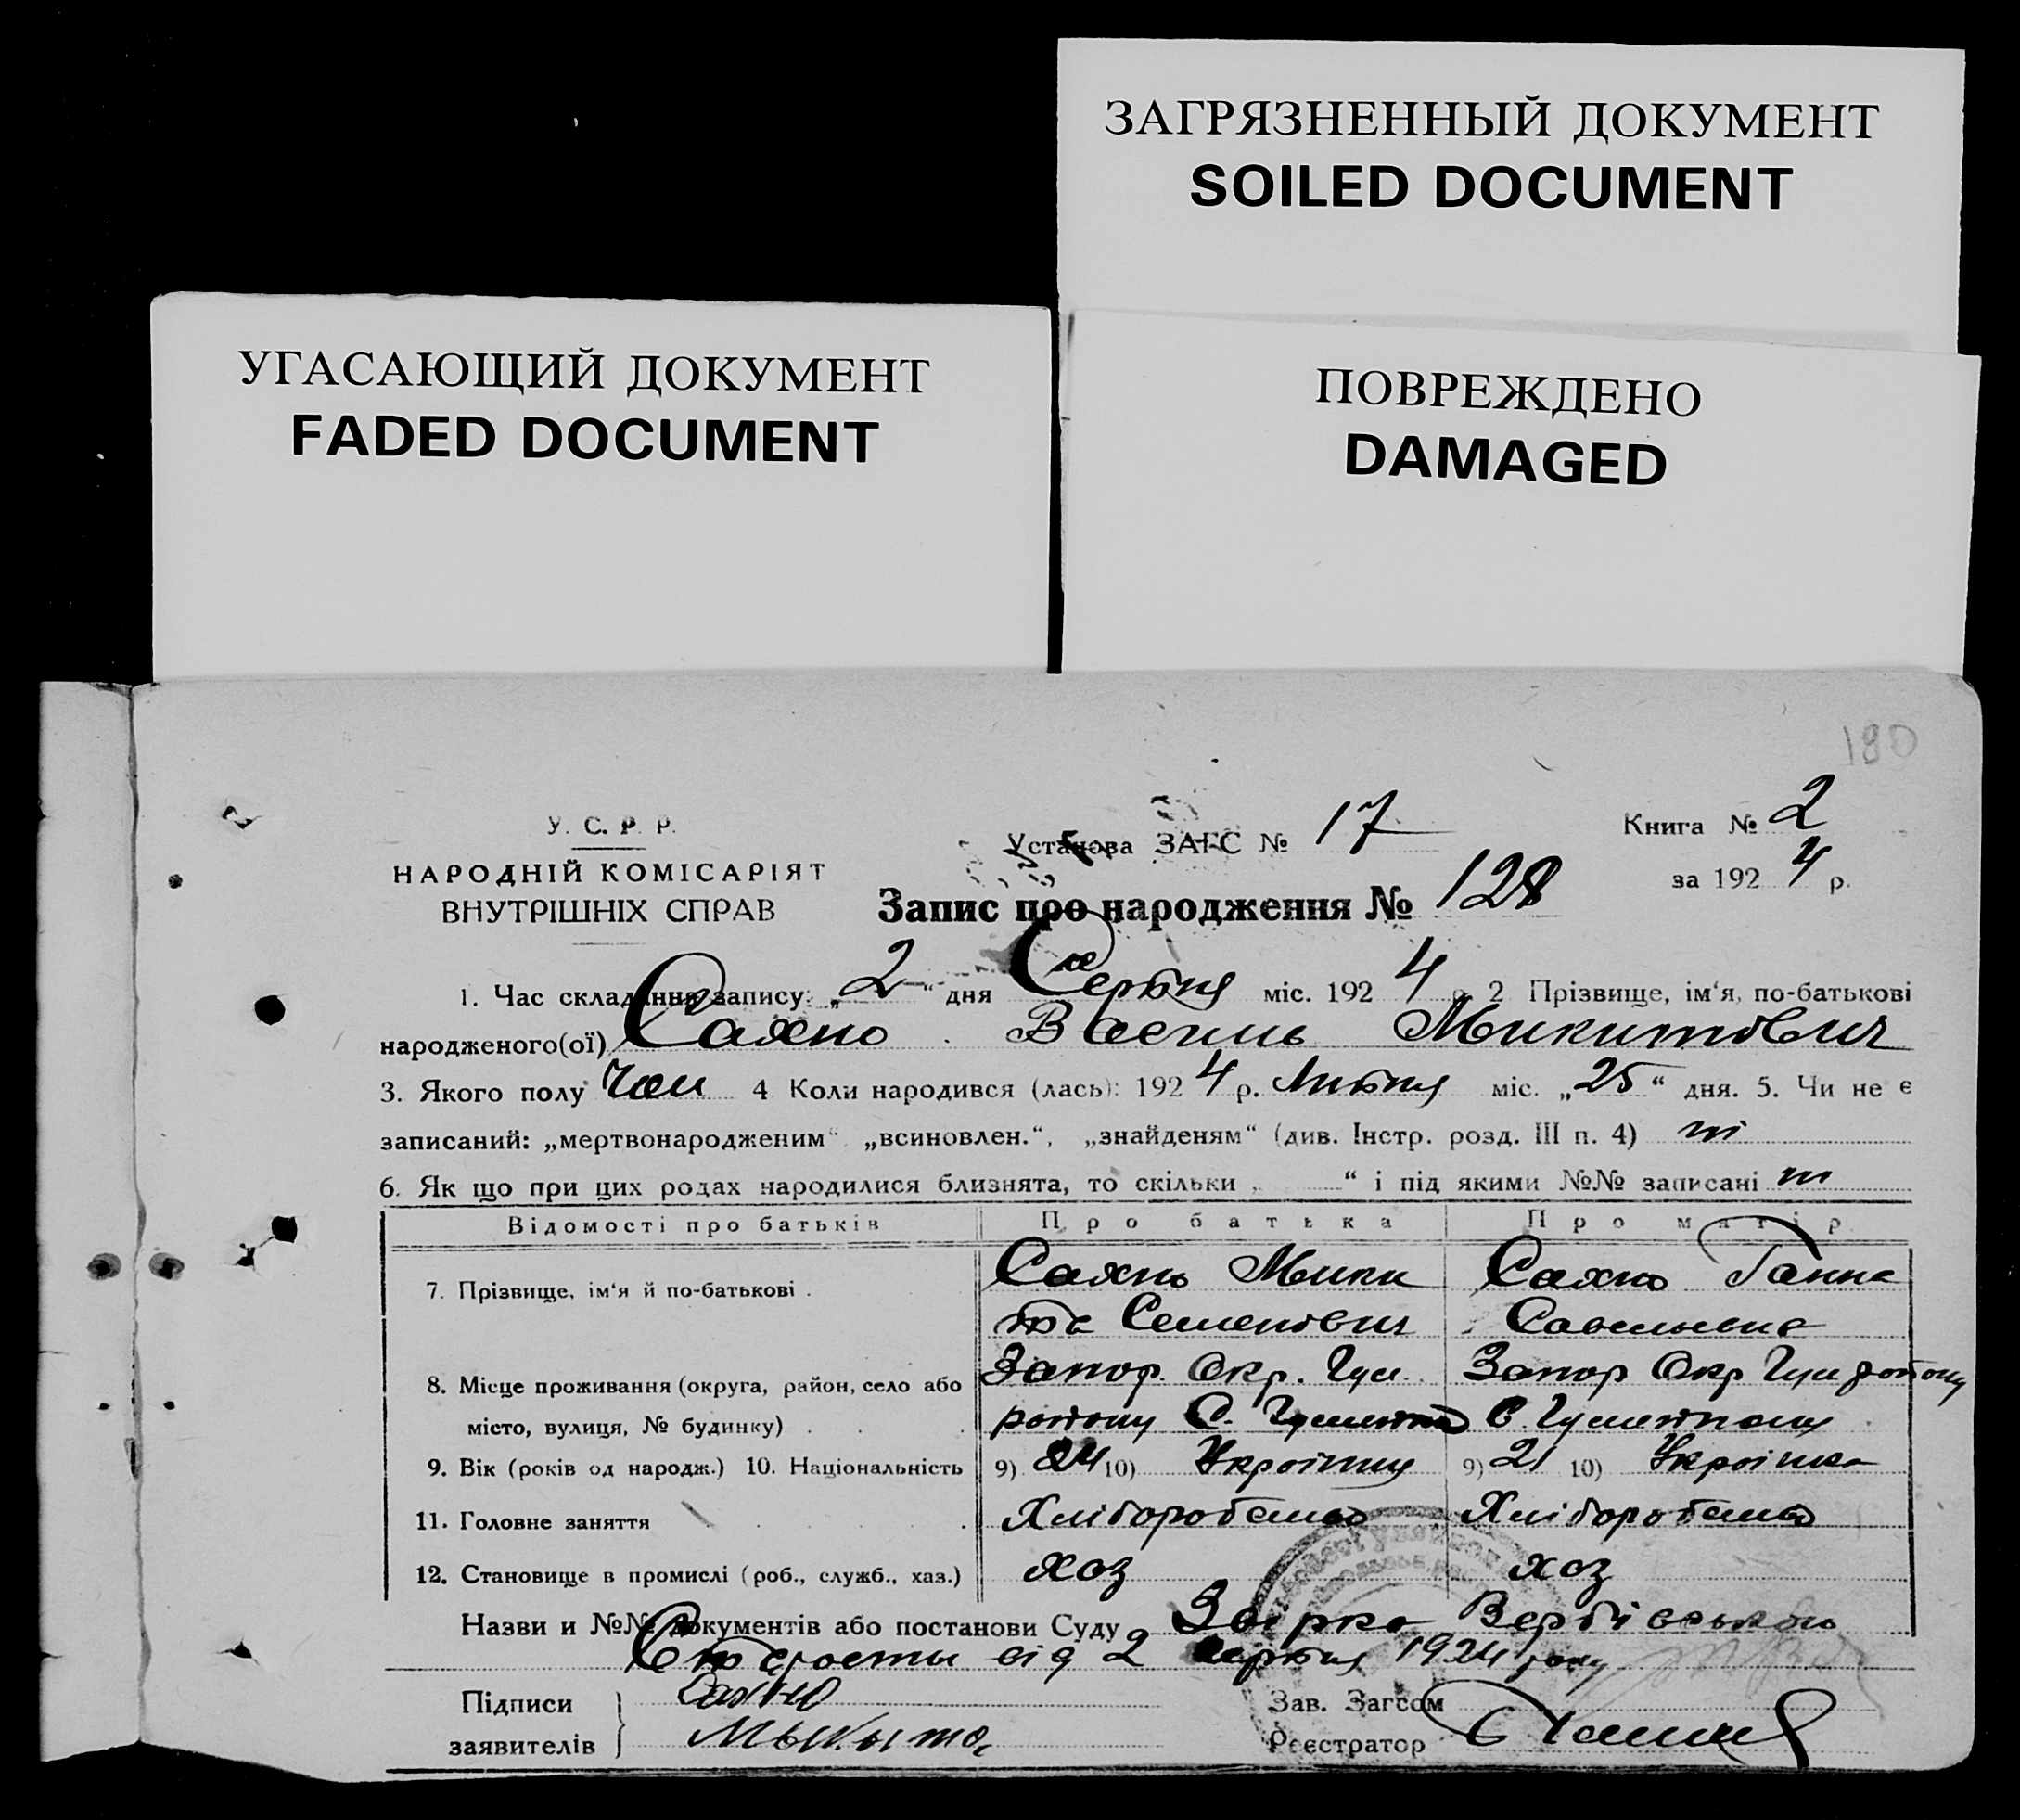 ЗАГРЯЗНЕННЫЙ ДОКУМЕНТ
SOILED DOCUMENT
УГАСАЮЩИЙ ДОКУМЕНТ
FADED DOCUMENT
ПОВРЕЖДЕНО
DAMAGED
180
У. С. Р. Р.
НАРОДНІЙ КОМІСАРІЯТ
ВНУТРІШНІХ СПРАВ
Установа ЗАГС № 17
Книга № 2
за 1924 р.
Запис про народження № 128
1. Час складання запису: „2“ дня Серпня міс. 1924 р. 2 Прізвище, ім'я, по-батькові
народженого(ої) Сахно Василь Микитович
3. Якого полу Чол 4 Коли народився (лась): 1924 р. Липня міс. „25“ дня. 5. Чи не є
записаний: „мертвонародженим“ „всиновлен.“, „знайденям“ (див. Інстр. розд. III п. 4) ні
6. Як що при цих родах народилися близнята, то скільки „ “ і під якими №№ записані ні
Відомості про батьків Про батька Про матір
7. Прізвище, ім'я й по-батькові . Сахно Мики Сахно Ганна
та Семенович Савельевна
8. Місце проживання (округа, район, село або Запор. Окр. Гул. Запор Окр Гул району
місто, вулиця, № будинку) району С.
9. Вік (років од народж.) 10. Національність 9) 24 10) Українець 9) 21 10) Українка
11. Головне заняття Хліборобство Хліборобство
12. Становище в промислі (роб., служб., хаз.) хоз хоз
Назви и №№ документів або постанови Суду Вербівського
від 2 серпня 1924 року
Підписи Сахно
заявителів Мыкыта
Зав. Загсом
Реєстратор